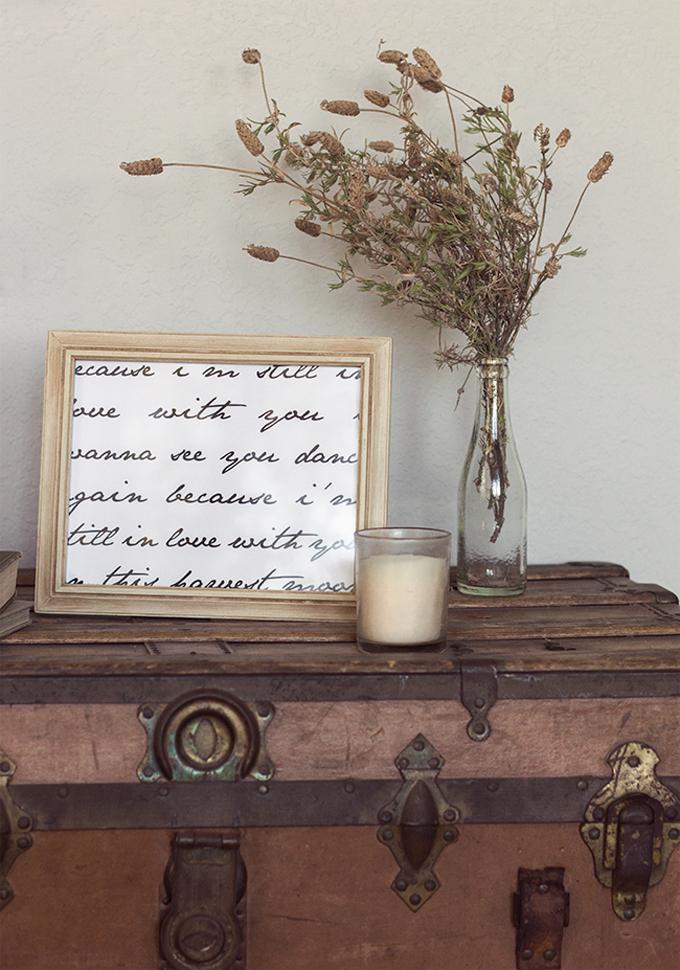 ecause i'm still in
love with you i
wanna see you danc
gain because i'm
till in love with you
n this harvest moon